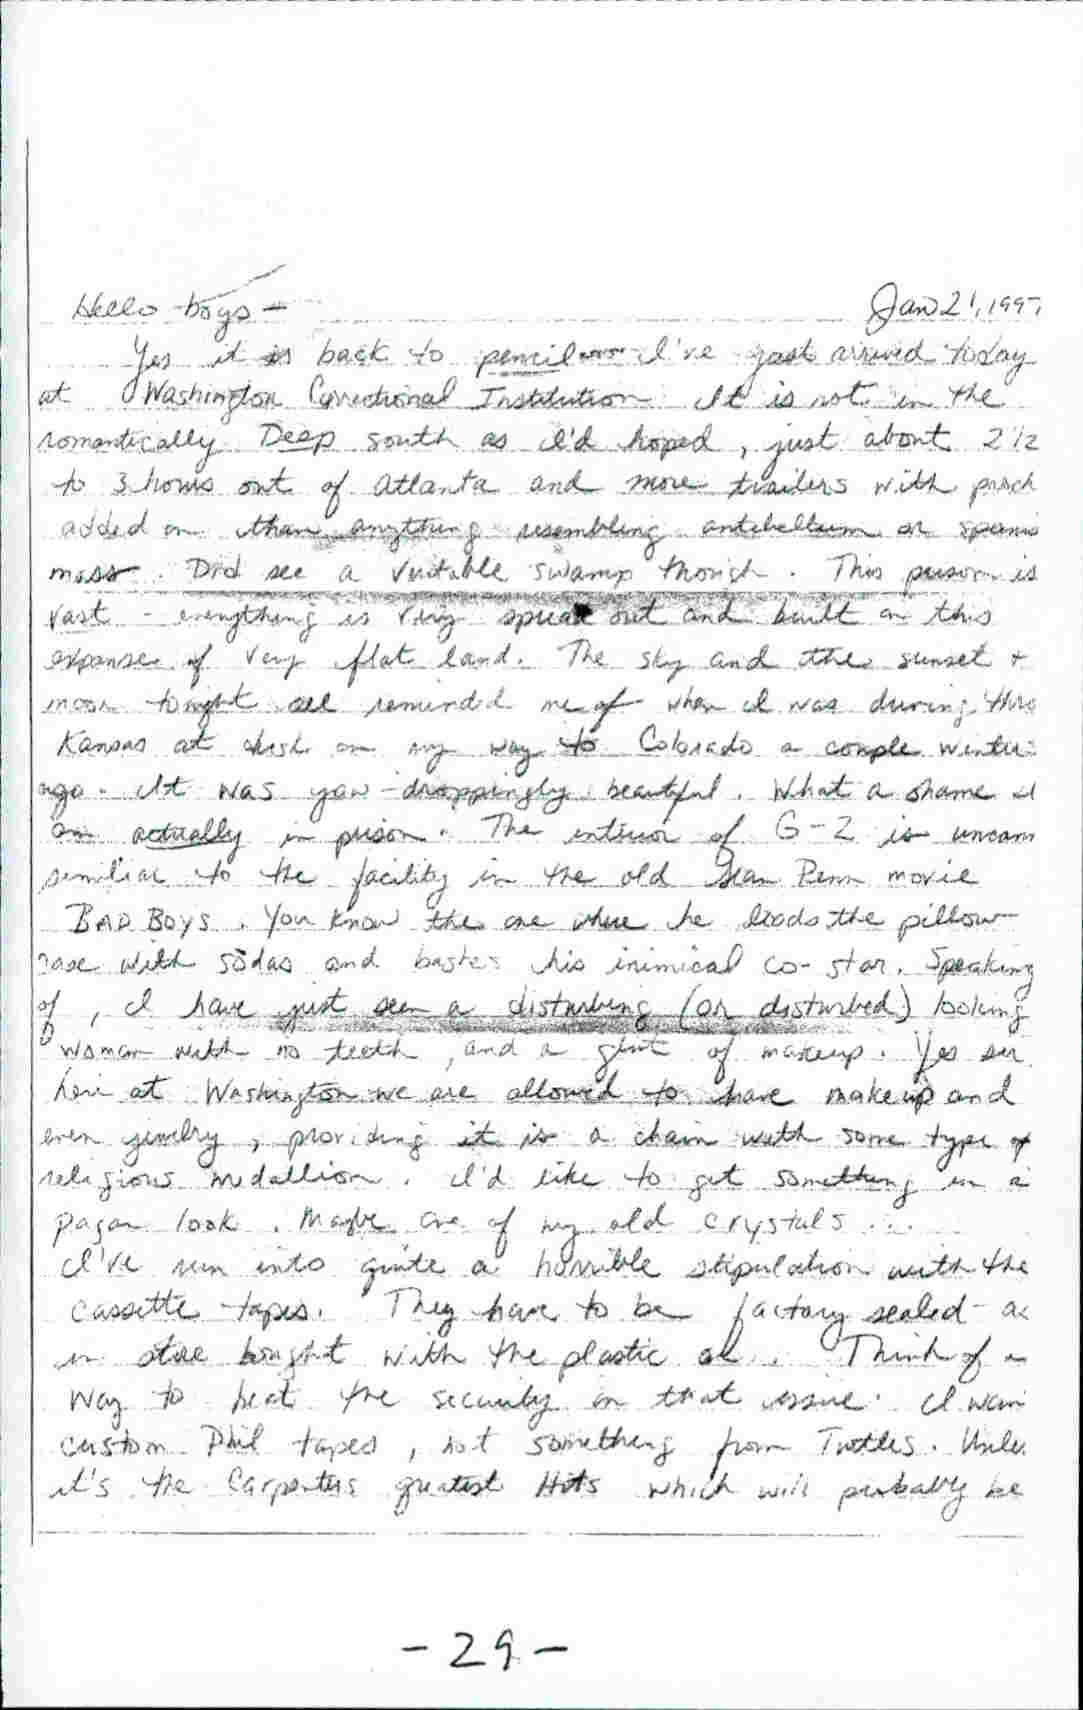 Hello boys - Jan 21, 1997
Yes it is back to pencil I've just arrived today
at Washington Correctional Institution. It is not in the
romantically Deep south as I'd hoped, just about 2 1/2
to 3 hours out of Atlanta and more trailers with porch
added on than anything resembling antibellum or
moss. Did see a veritable swamp though. This prison is
vast - everything is very spread out and built on this
expanse of very flat land. The sky and the sunset +
moon tonight all reminded me of when I was driving thru
Kansas at dusk on my way to Colorado a couple winter
ago. It was yaw-droppingly beautiful. What a shame I
am actually in prison. The interior of G-2 is
similiar to the facility in the old Sean Penn movie
BAD BOYS. You know the one where he loads the pillow
case with sodas and bashes his inimical co-star. Speaking
of, I have just seen a disturbing (or disturbed) looking
woman with no teeth, and a of makeup. Yes sir
here at Washington we are allowed to have makeup and
even jewelry, providing it is a chain with some type of
religious medallion. I'd like to get something in a
pagan look. Maybe one of my old crystals ...
I've run into quite a horrible stipulation with the
cassette tapes. They have to be factory sealed - as
in store bought with the plastic Think of a
way to beat the security on that issue. I
custom Phil tapes, not something from Turtles. Unless
it's the Carpenters greatest Hits which will probably be
- 29 -